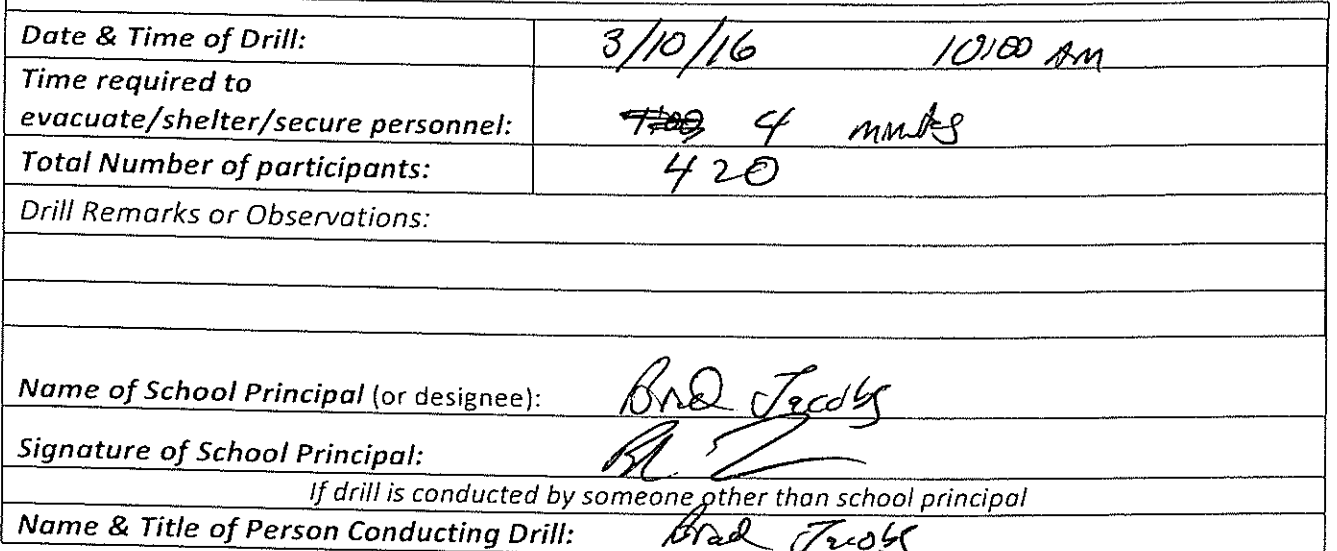 Date & Time of Drill: 3/10/16 10:00 AM
Time required to
evacuate/shelter/secure personnel: 4 minutes
Total Number of participants: 420
Drill Remarks or Observations:
Name of School Principal (or designee): Brad Jacobs
Signature of School Principal:
If drill is conducted by someone other than school principal
Name & Title of Person Conducting Drill: Brad Jacobs